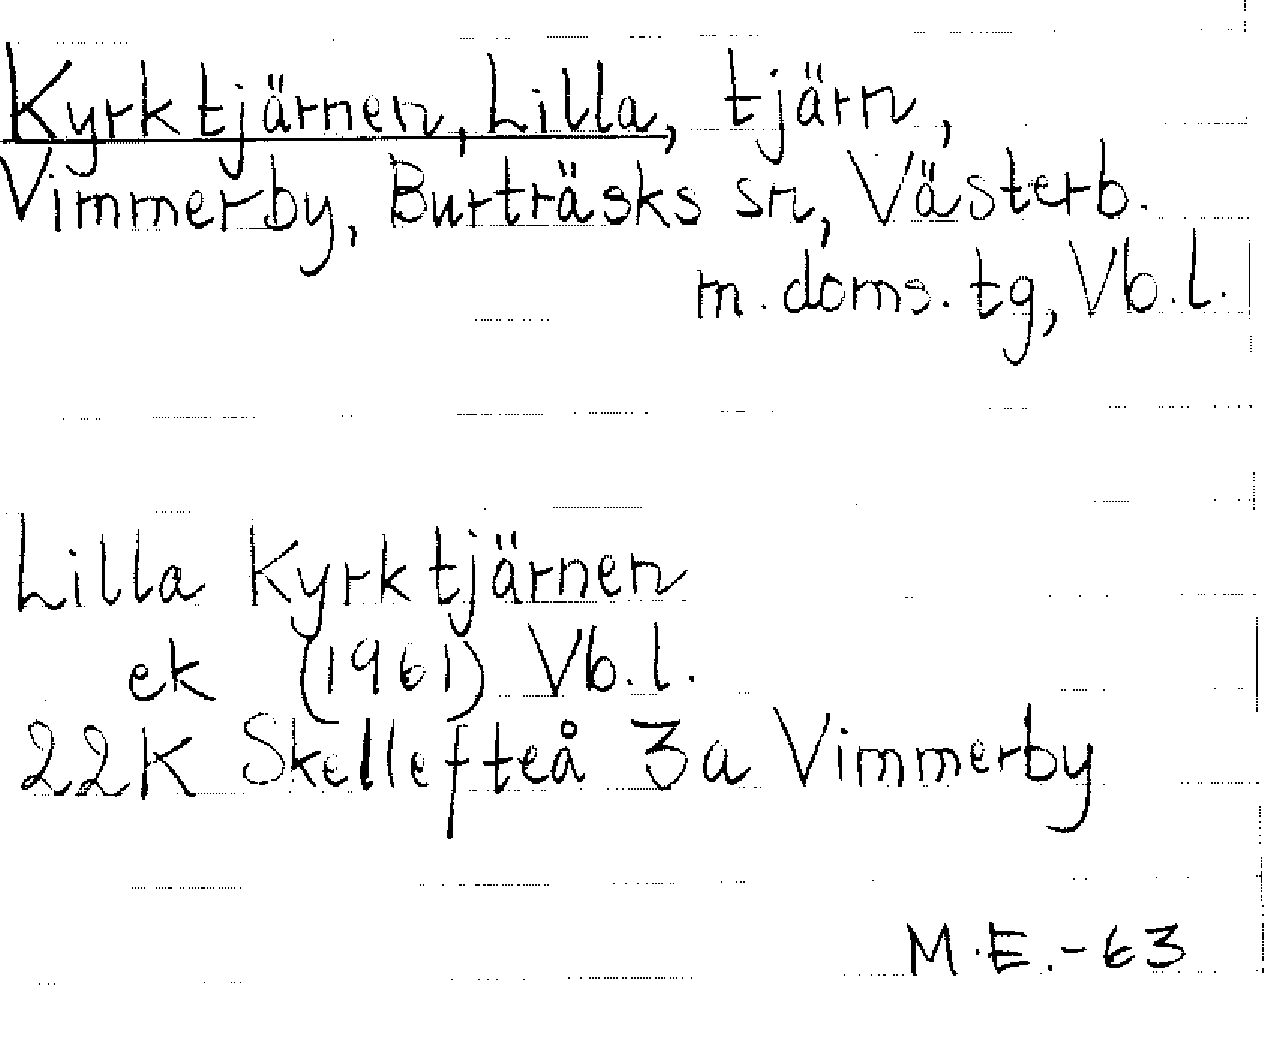 Kyrktjärnen, Lilla, tjärn,
Vimmerby, Burträsks sn, Västerb.
m. doms. tg, Vb.l.
Lilla Kyrktjärnen
ek (1961) Vb.l.
22K Skellefteå 3a Vimmerby
M.E.-63